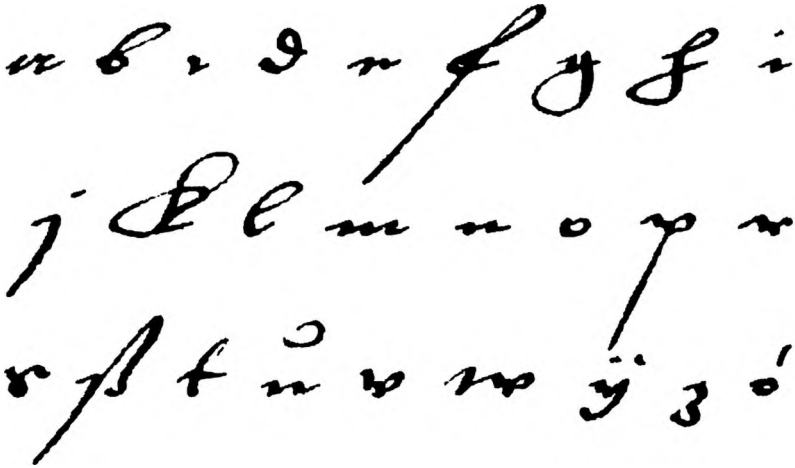 a b c d e f g h i
j k l m n o p r
s ß t u v w ÿ z ó